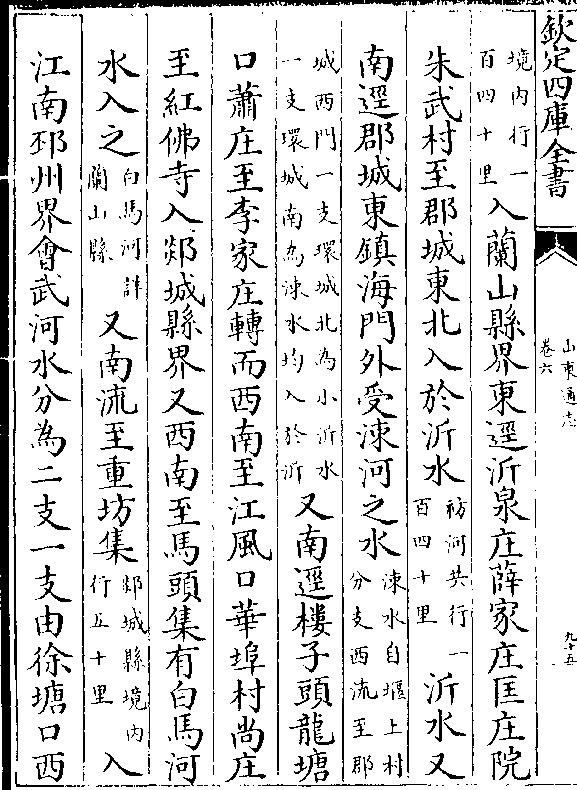 欽定四庫全書
山東通志
卷六
九十五
境內行一
百四十里
入蘭山縣界東逕沂泉庄薛家庄匡庄院
朱武村至郡城東北入於沂水
祊河共行一
百四十里
沂水又
南逕郡城東鎮海門外受涑河之水
涑水自堰上村
分支西流至郡
城西門一支環城北為小沂水
一支環城南為涑水均入於沂
又南逕樓子頭龍塘
口蕭庄至李家庄轉而西南至江風口華埠村尚庄
至紅佛寺入郯城縣界又西南至馬頭集有白馬河
水入之
白馬河詳
蘭山縣
又南流至重坊集
郯城縣境內
行五十里
入
江南邳州界會武河水分為二支一支由徐塘口西